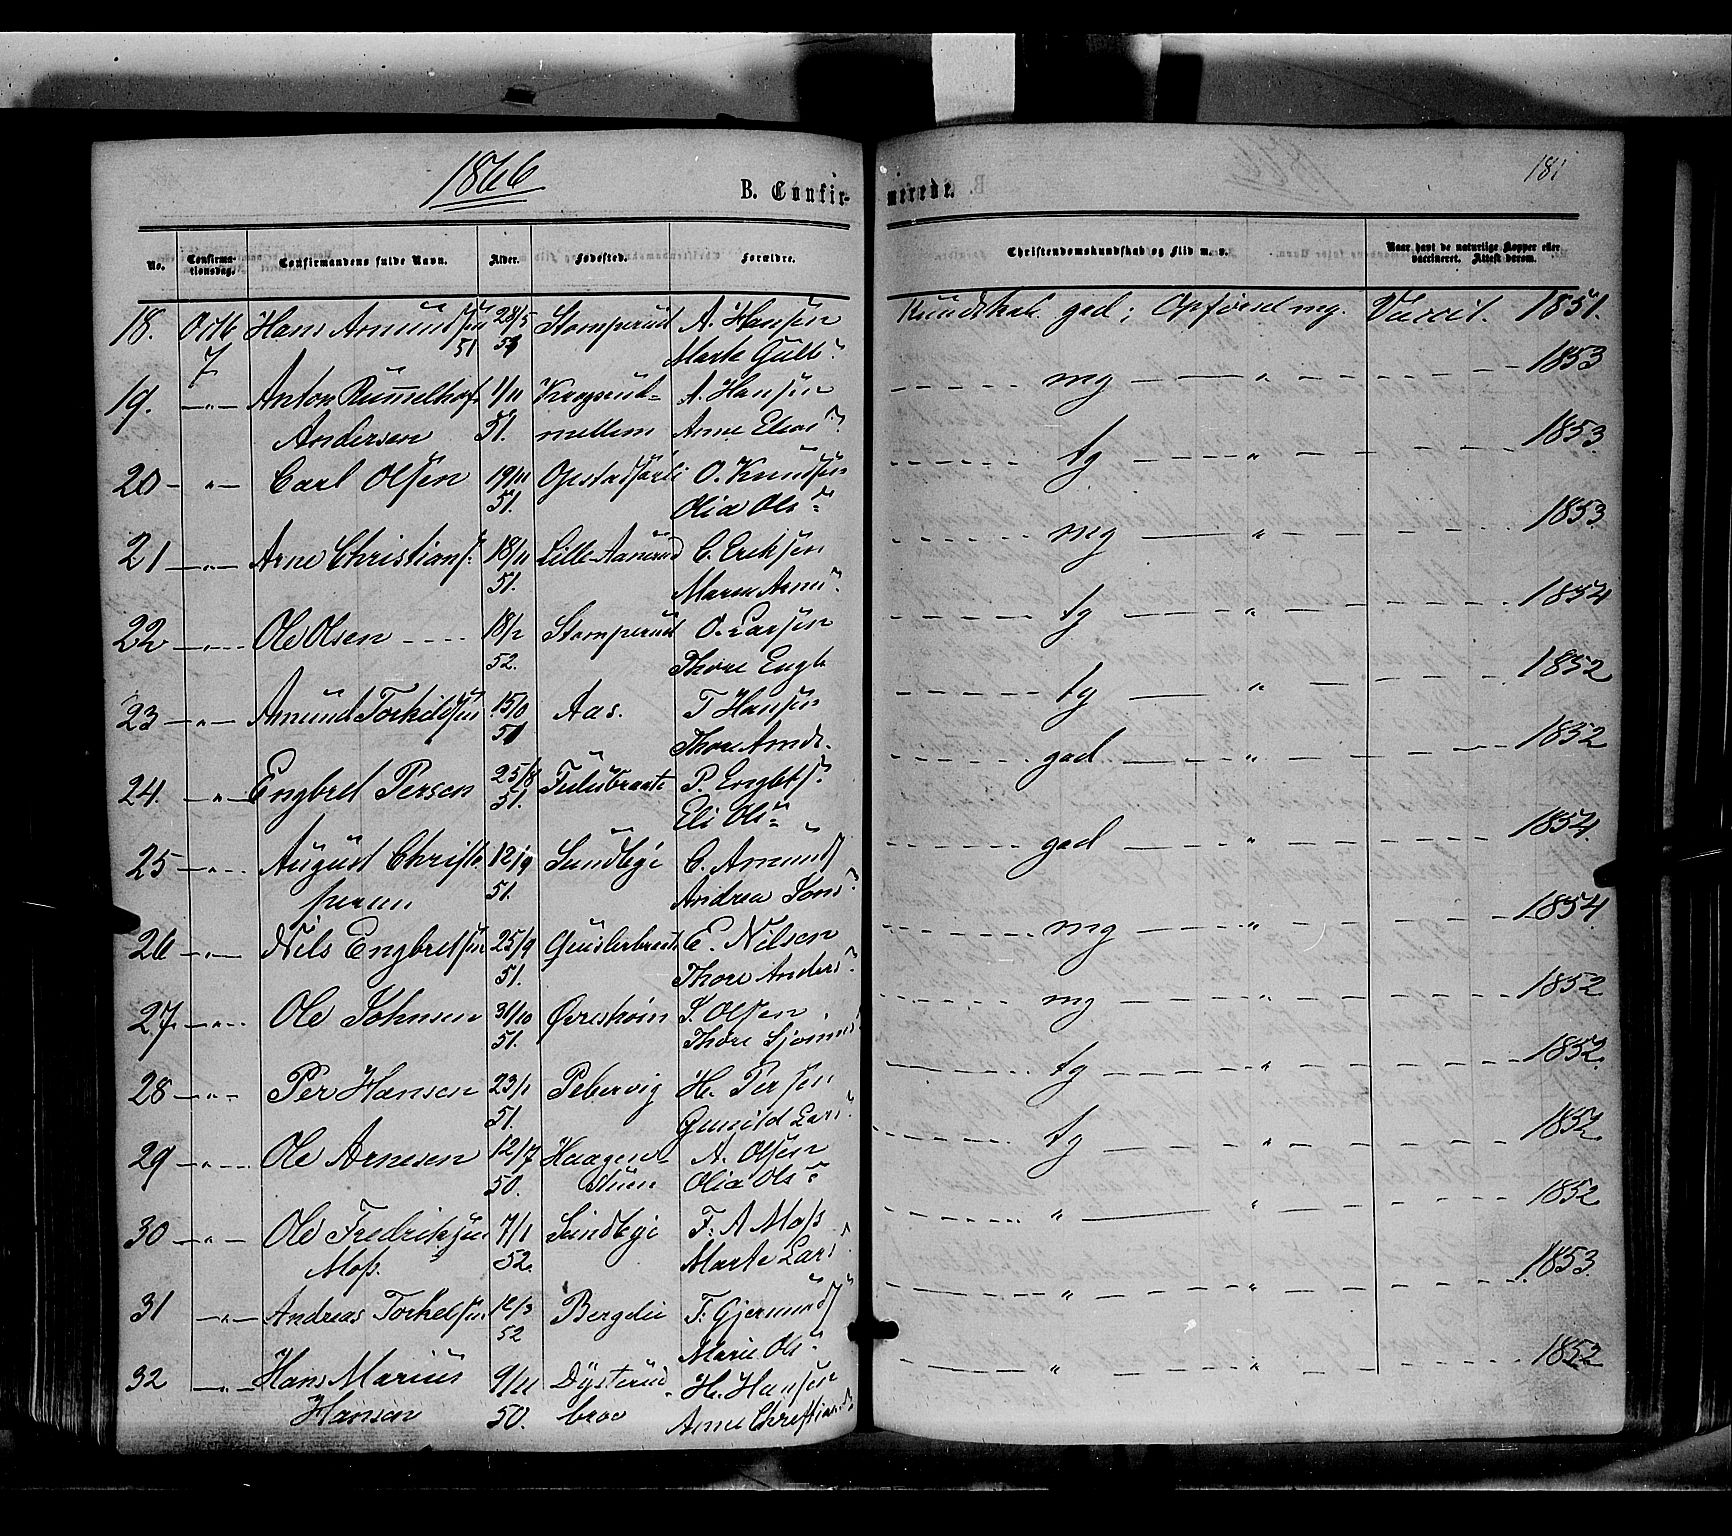 1866
181
B. Confir-
merede.
No. Confirma-
tionsdag. Confirmandens fulde Navn. Alder. Fødested. Forældre. Christendomskundskab og Flid m. v. Naar havt de naturlige Kopper eller
vaccineret. Attest derom.
18. Octb Hans Amundsen 28/5 Stomperud A. Hansen Kundskab god; Opførsel mg. Vaccit. 1851.
7 51 Marte Gulb
19. — " — Anton Rummelhof 1/11 A. Hansen mg — " — 1853
Andersen 51. mellem Anne Elias
20 — " — Carl Olsen 19/11 O. Knudsen tg — " — 1853
51. Olia Ols
21 — " — Arne Christians 18/11 Lille-Aanerud C. Eriksen mg — " — 1853
51. Maren Arne
22 — " — Ole Olsen 18/2 Stomperud O. Larsen tg — " — 1854
52. Thore Engb
23 — " — Amund Torkildsen Aas. T Hansen tg — " — 1852
51 Thore Amds.
24 — " — Engbret Persen 25/8 P. Engbts god — " — 1852
51. Eli Ols
25 — " — August Christo 12/9 Sundbye C. Amunds god — " — 1854
phersen 51. Andrea Jons
26 — " — Nils Engbretsen 25/9 E. Nilsen mg — " — 1854
51. Thore Anders
27 — " — Ole Johnsen 31/10 J. Olsen mg — " — 1852
51. Thore
28 — " — Per Hansen 23/1 Pebervig H. Persen tg — " — 1852.
51. Gunild Lars
29 — " — Ole Arnesen 12/7 Haagen A. Olsen tg — " — 1852.
50. stuen Olia Ols
30 — " — Ole Fredriksen 7/1 Sundbye F. A Moss " — " — 1852
Moss. 52. Marte Lars
31 — " — Andreas Torkelsen 12/3 Bergelie T. Gjermunds " — " — 1853.
52 Marie Ols
32 — " — Hans Marius 9/11 Dysterud H. Hansen " — " — 1852
Hansen 50. broe Anne Christians